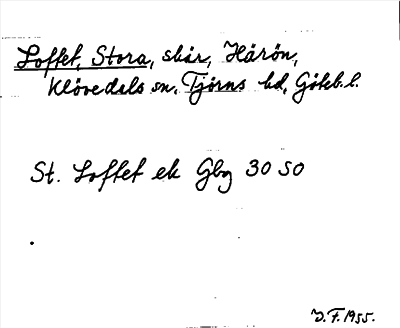 Loffet, Stora, skär, Härön,
Klövedals sn, Tjörns hd, Göteb. l.
St. Loffet ek Gbg 30 SO
J. F. 1955.